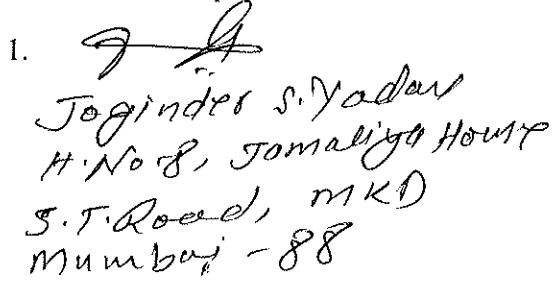 1.
Joginder S. Yadav
H. No-8, Jamaliya House
S.T. Road, MKD
Mumbai - 88